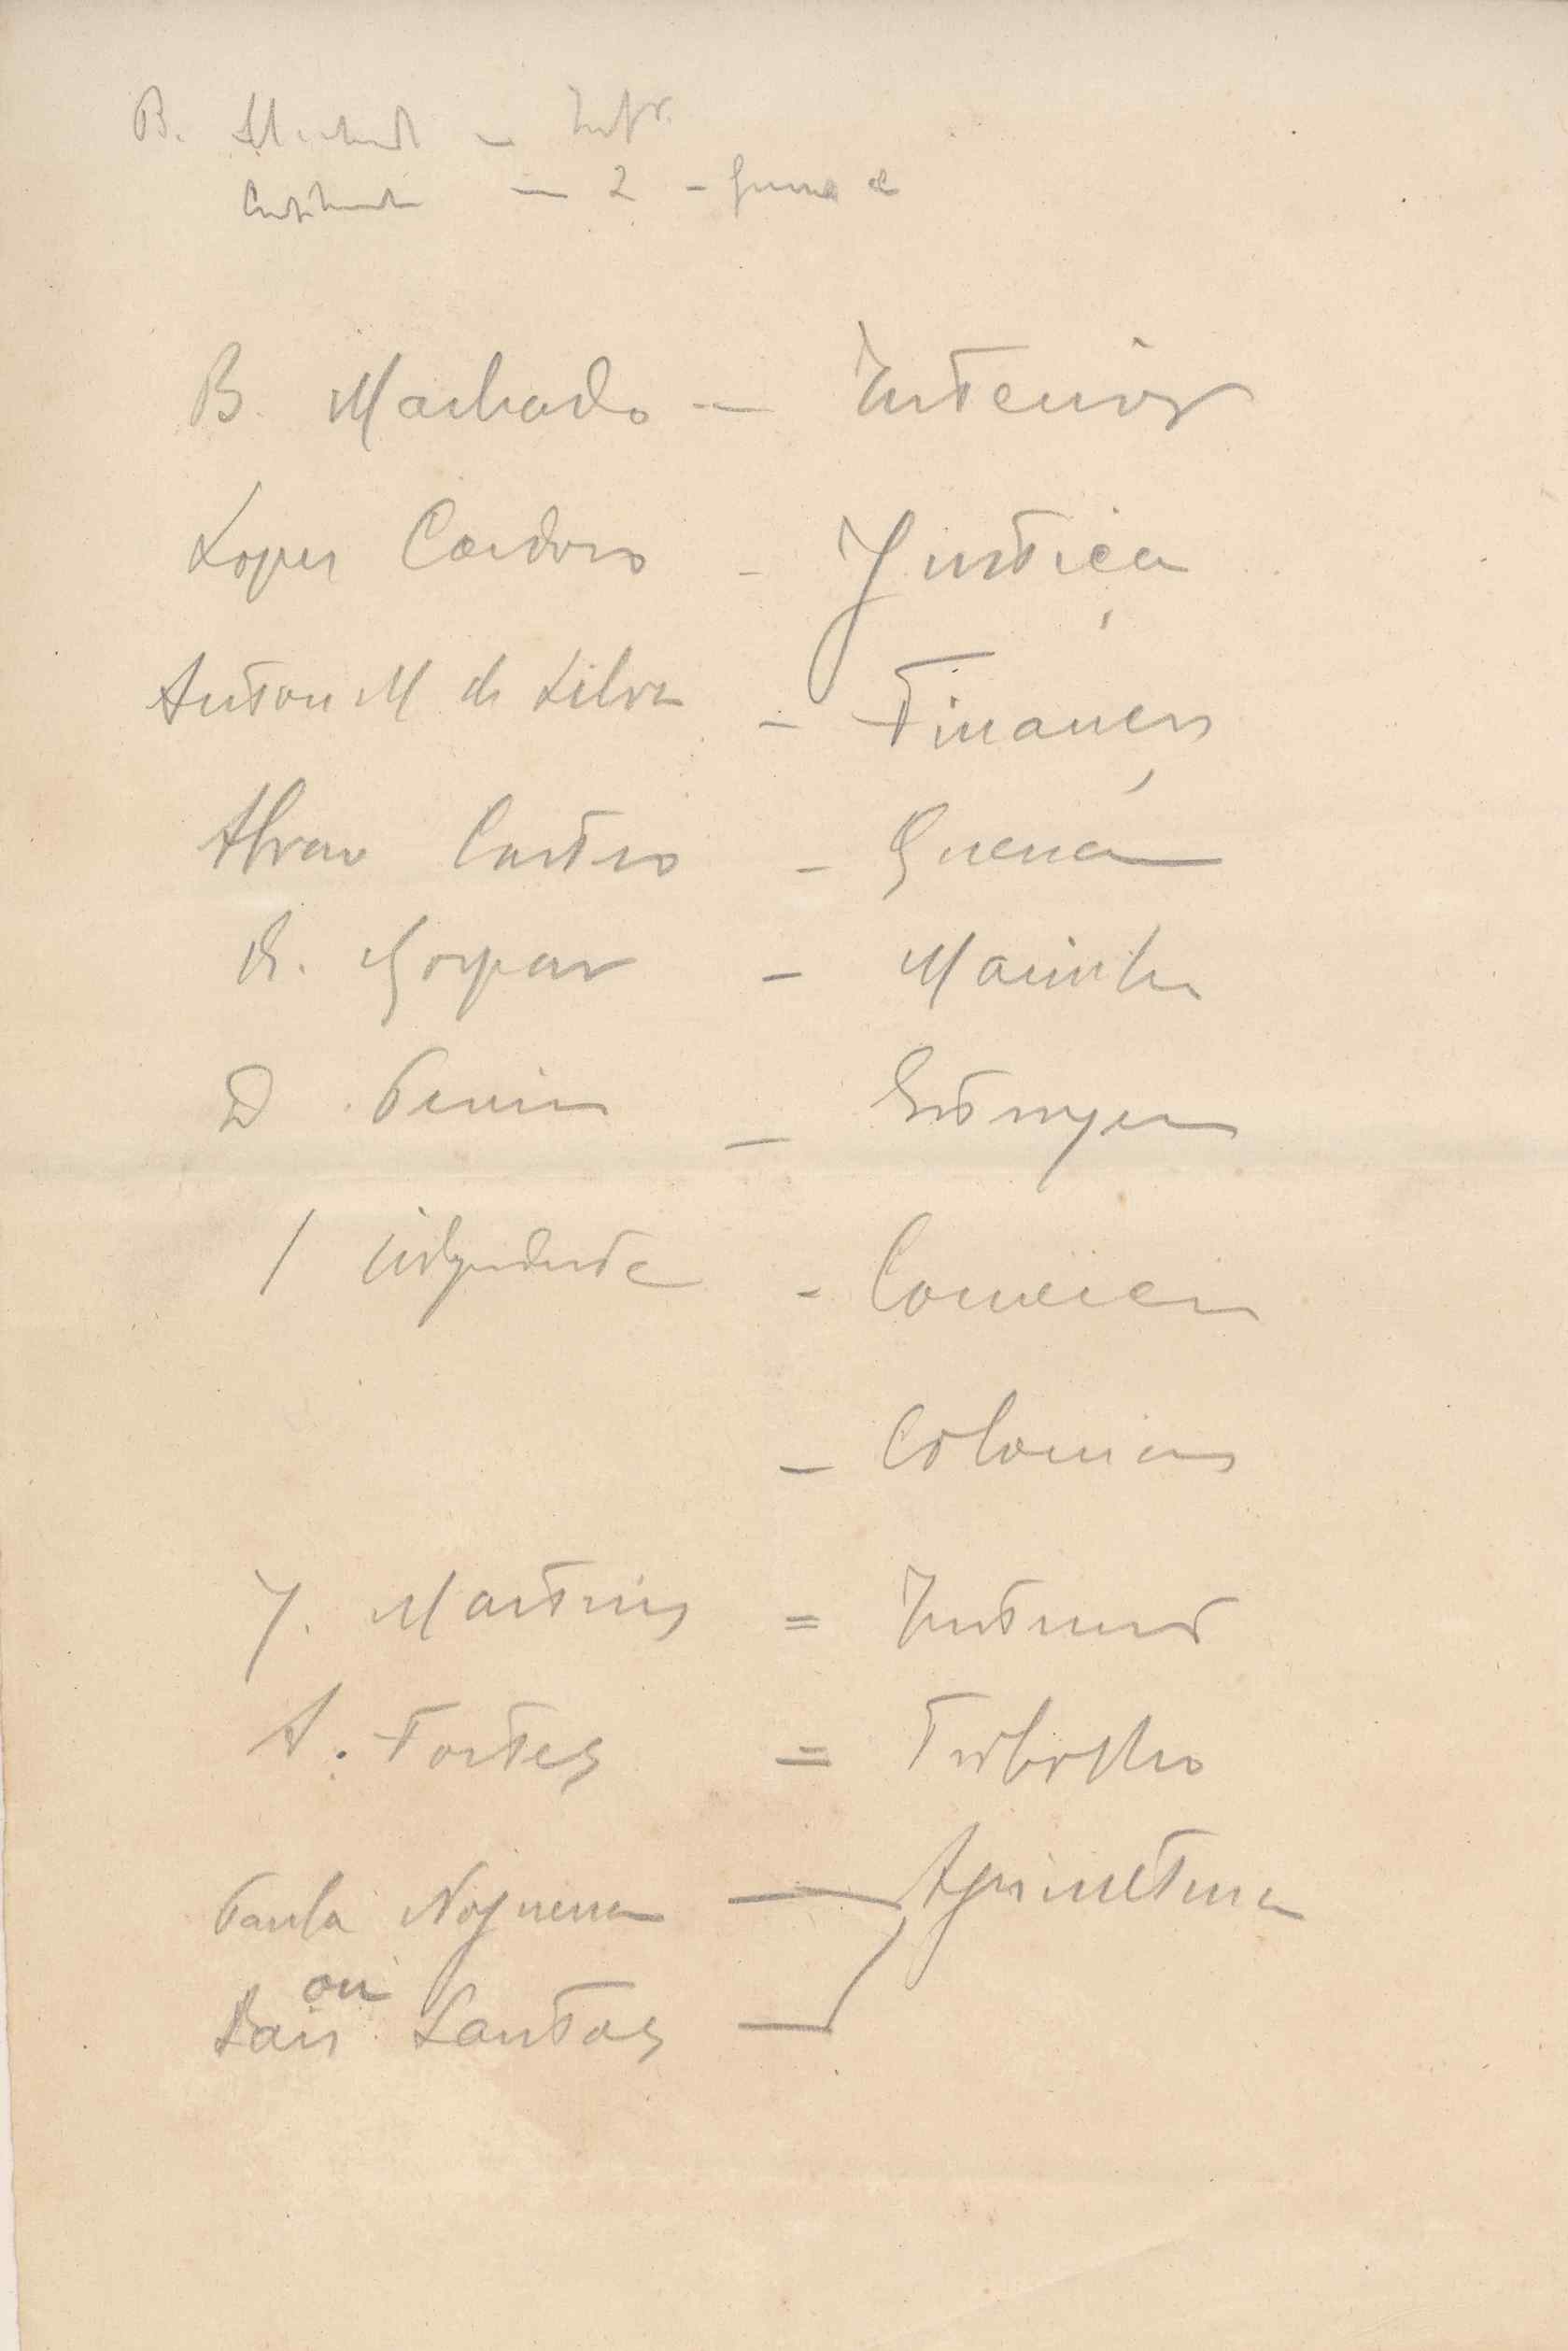 B. Machado — Inter.
— 2 - Guerra e
B. Machado — Interior
Lopes Cardoso - Justiça
Antonio M da Silva - Finanças
Alvaro Castro - Guerra
R. Gaspar - Marinha
D. Pereira — Estrangeiros
1 independente - Comercio
— Colonias
J. Martins = Instrução
A. Fortes = Trabalho
Paula Nogueira — Agricultura
ou
Pais Santos —